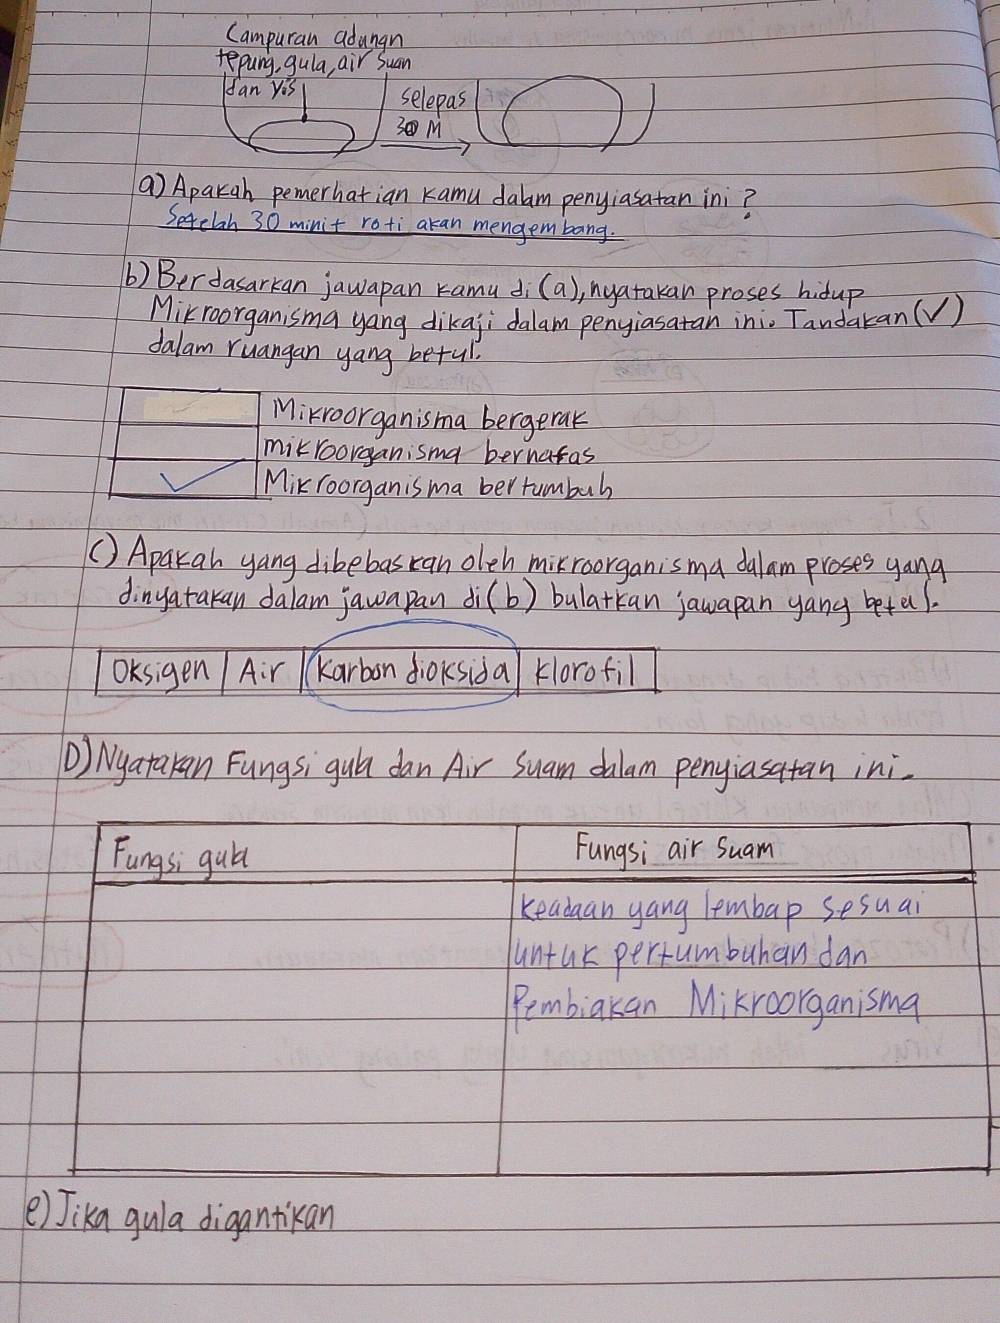 Campuran adunan
tepung, gula, air Suan
dan Yis
selepas
30 M
a) Apakah pemerhatian kamu dalam penyiasatan ini ?
Setelah 30 minit roti akan mengembang.
b) Berdasarkan jawapan kamu di (a), nyatakan proses hidup
Mikroorganisma yang dikaji dalam penyiasatan ini. Tandakan (✓)
dalam ruangan yang betul.
Mikroorganisma bergerak
mikroorganisma bernafas
✓ Mikroorganisma bertumbuh
C) Apakah yang dibebaskan oleh mikroorganisma dalam proses yang
dinyatakan dalam jawapan di (b) bulatkan jawapan yang betul.
Oksigen Air Karbon dioksida klorofil
D) Nyatakan Fungsi gula dan Air Suam dalam penyiasatan ini.
Fungsi gula Fungsi air Suam
keadaan yang lembap sesuai
untuk pertumbuhan dan
Pembiakan Mikroorganisma
e) Jika gula digantikan